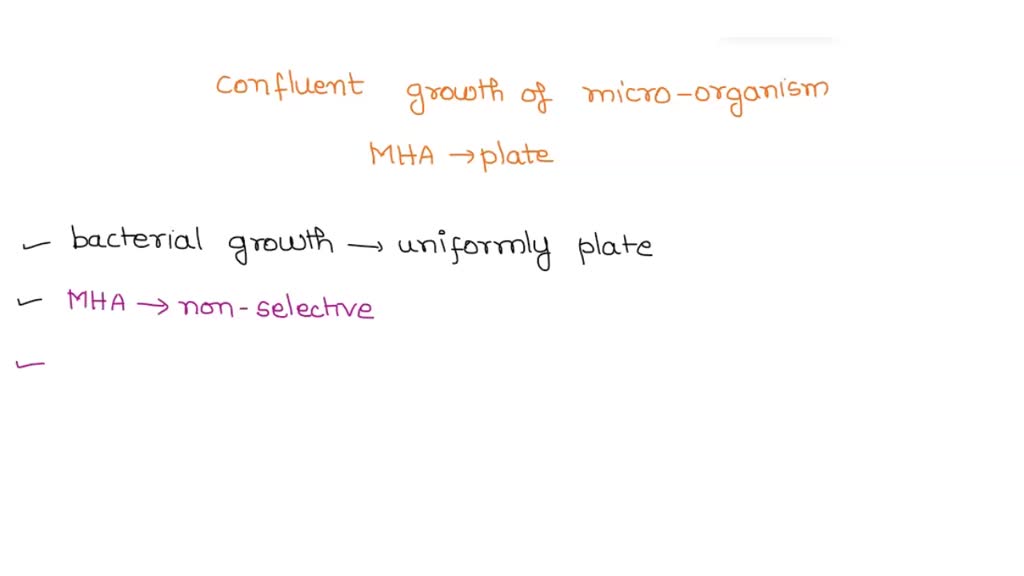 confluent growth of micro-organism
MHA → plate
bacterial growth → uniformly plate
MHA → non-selective